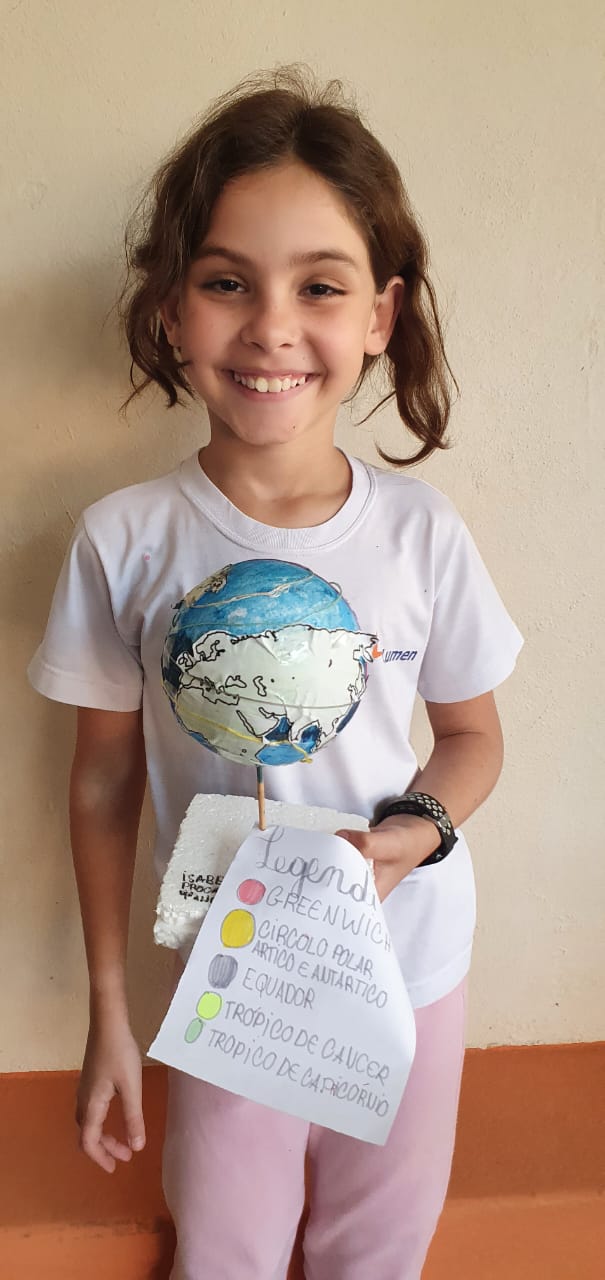 Lumen
ISABE
PROCA
4º A
Legenda
GREENWICH
CÍRCOLO POLAR
ARTICO E ANTÁRTICO
EQUADOR
TRÓPICO DE CANCER
TROPICO DE CAPICÓRNIO